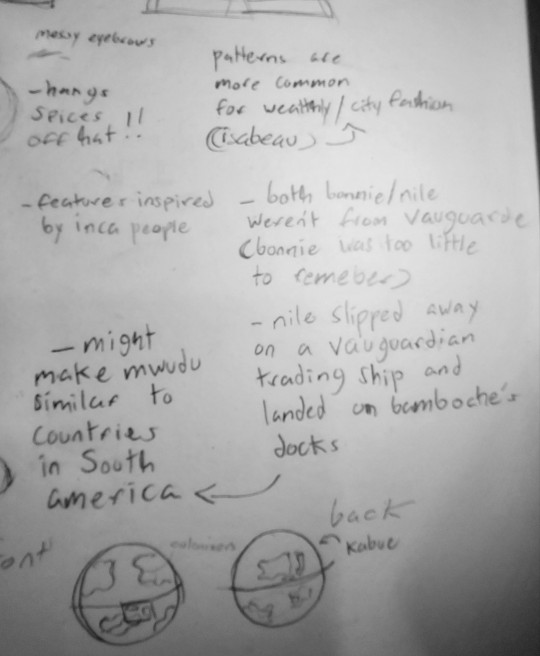 messy eyebrows
- hangs
spices !!
off hat!!
patterns are
more common
for wealthly / city fashion
(isabeau)
- features inspired
by inca people
- both bonnie/nile
weren't from vauguarde
(bonnie was too little
to remeber)
- might
make mwudu
similar to
countries
in South
america
- nile slipped away
on a vauguardian
trading ship and
landed on bamboche's
docks
back
Kabue